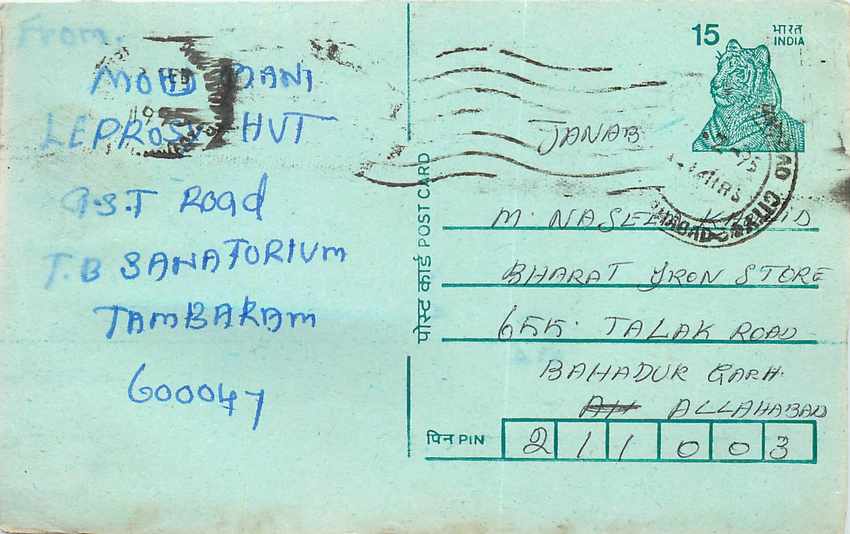 From.
MOHD MANI
LEPROSY HUT
G.S.T ROad
T.B SANATORIUM
TAMBARAM
600047
पोस्ट कार्ड POST CARD
15 भारत
INDIA
JANAB
M. NASEEM KHALID
BHARAT IRON STORE
655. TALAK ROAD
BAHADUR GARH.
ALLAHABAD
पिन PIN 211003